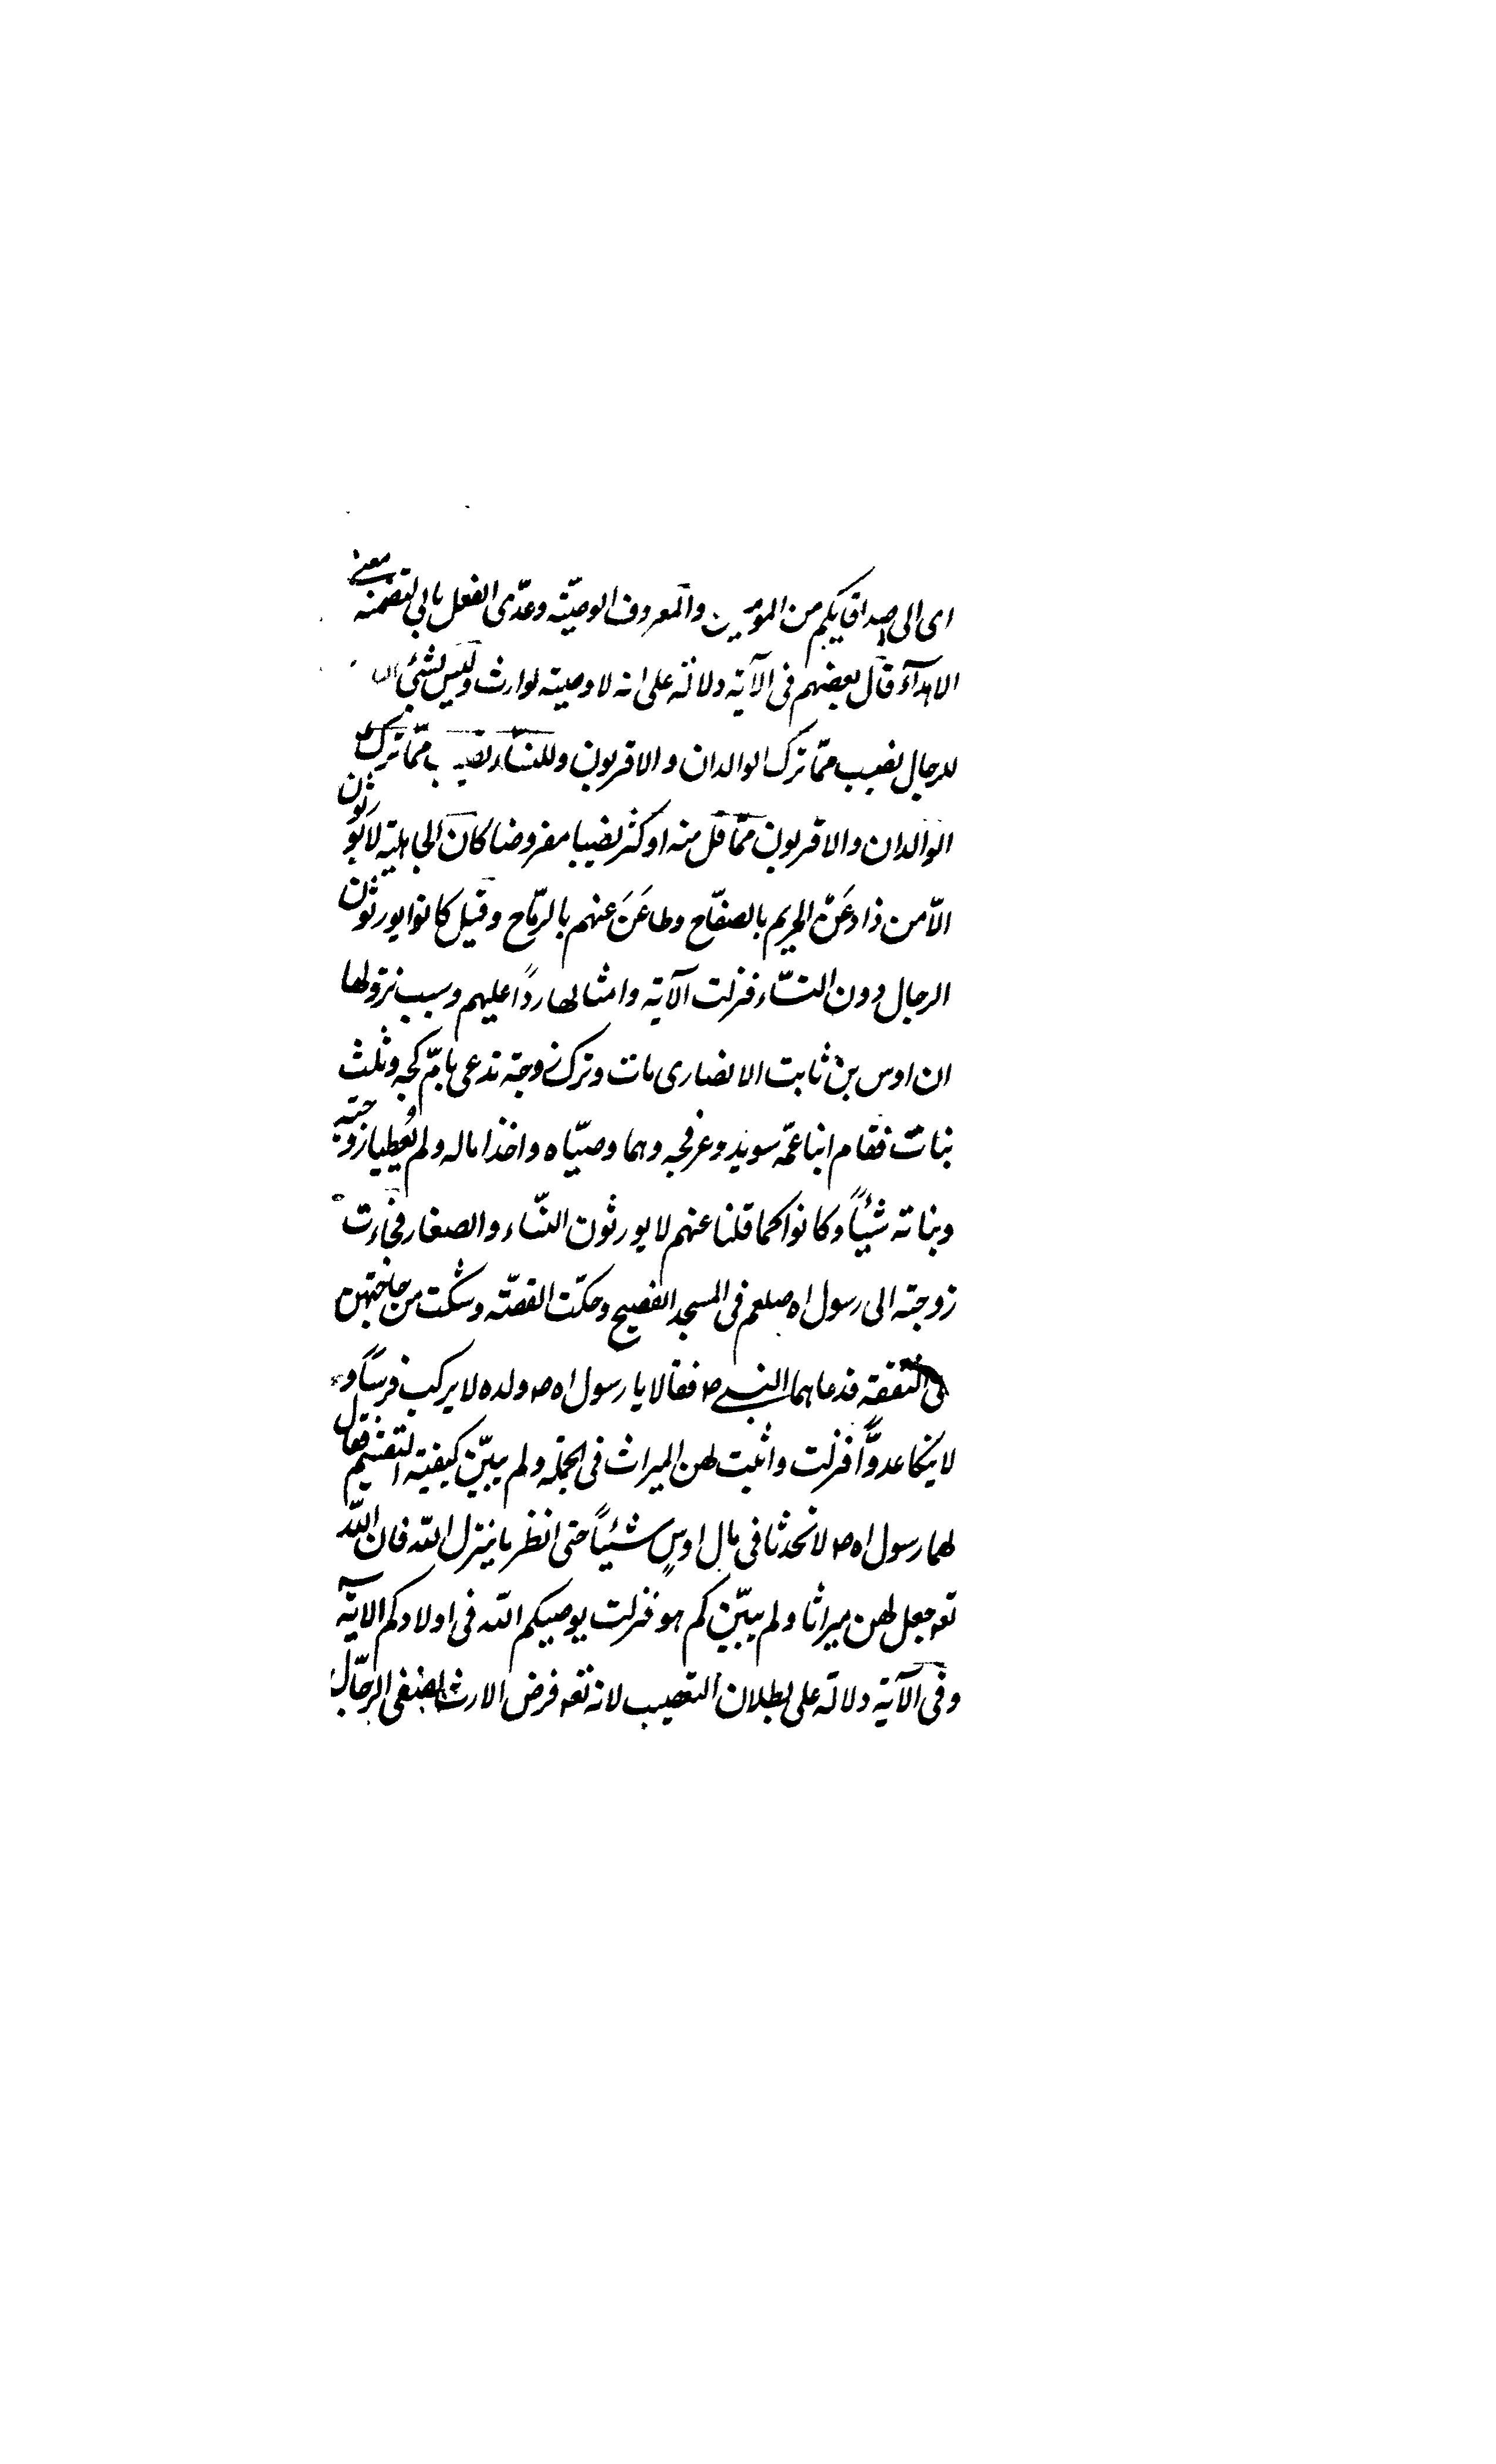 ای الی اصدقایکم من المؤمنین والمعروف الوصیّة وعدّی الفعل بالی لتضمنه معنی
الاهدآء قال بعضهم فی الآیة دلالة علی انه لا وصیة لوارث ولیس بشئ
للرجال نصیب ممّا ترک الوالدان والاقربون وللنسآء نصیب ممّا ترک
الوالدان والاقربون ممّا قل منه او کثر نصیبا مفروضا کان الجاهلیة لا یورثون
الّا من ذاد عَنْ الحریم بالصفّاح وطاعَنَ عنهم بالرمّاح وقیل کانوا یورثون
الرجال دون النسّاء فنزلت الآیة وامثالها رداً علیهم وسبب نزولها
ان اوس بن ثابت الانصاری مات وترک زوجة تدعی بامّ کجه وثلث
بنات فقام ابنا عمّه سوید وعرفجه وهما وصیّاه واخذا ماله ولم یُعطیا زوجته
وبناته شیئاً وکانوا کما قلنا عنهم لا یورثون النسّاء والصغار فجاءت
زوجته الی رسول اه صلعم فی المسجد الفضیح وحکت القصّة وشکت من حاجتهن
الی النفقة فدعاهما النبی ص فقالا یا رسول اه ص ولده لا یرکب فرساً و
لا ینکا عدوّاً فنزلت واثبت لهن المیراث فی الجملة ولم یبیّن کیفیة التقسیم فقال
لهما رسول اه ص لا تحدثا فی مال اوسٍ شیئاً حتی انظر ما ینزل اللّه فان اللّه
تعه جعل لهن میراثا ولم یبیّن کم هو فنزلت یوصیکم اللّه فی اولادکم الآیة
وفی الآیة دلالة علی بطلان التعصیب لانه تعه فرض الارث لصنفی الرجّال